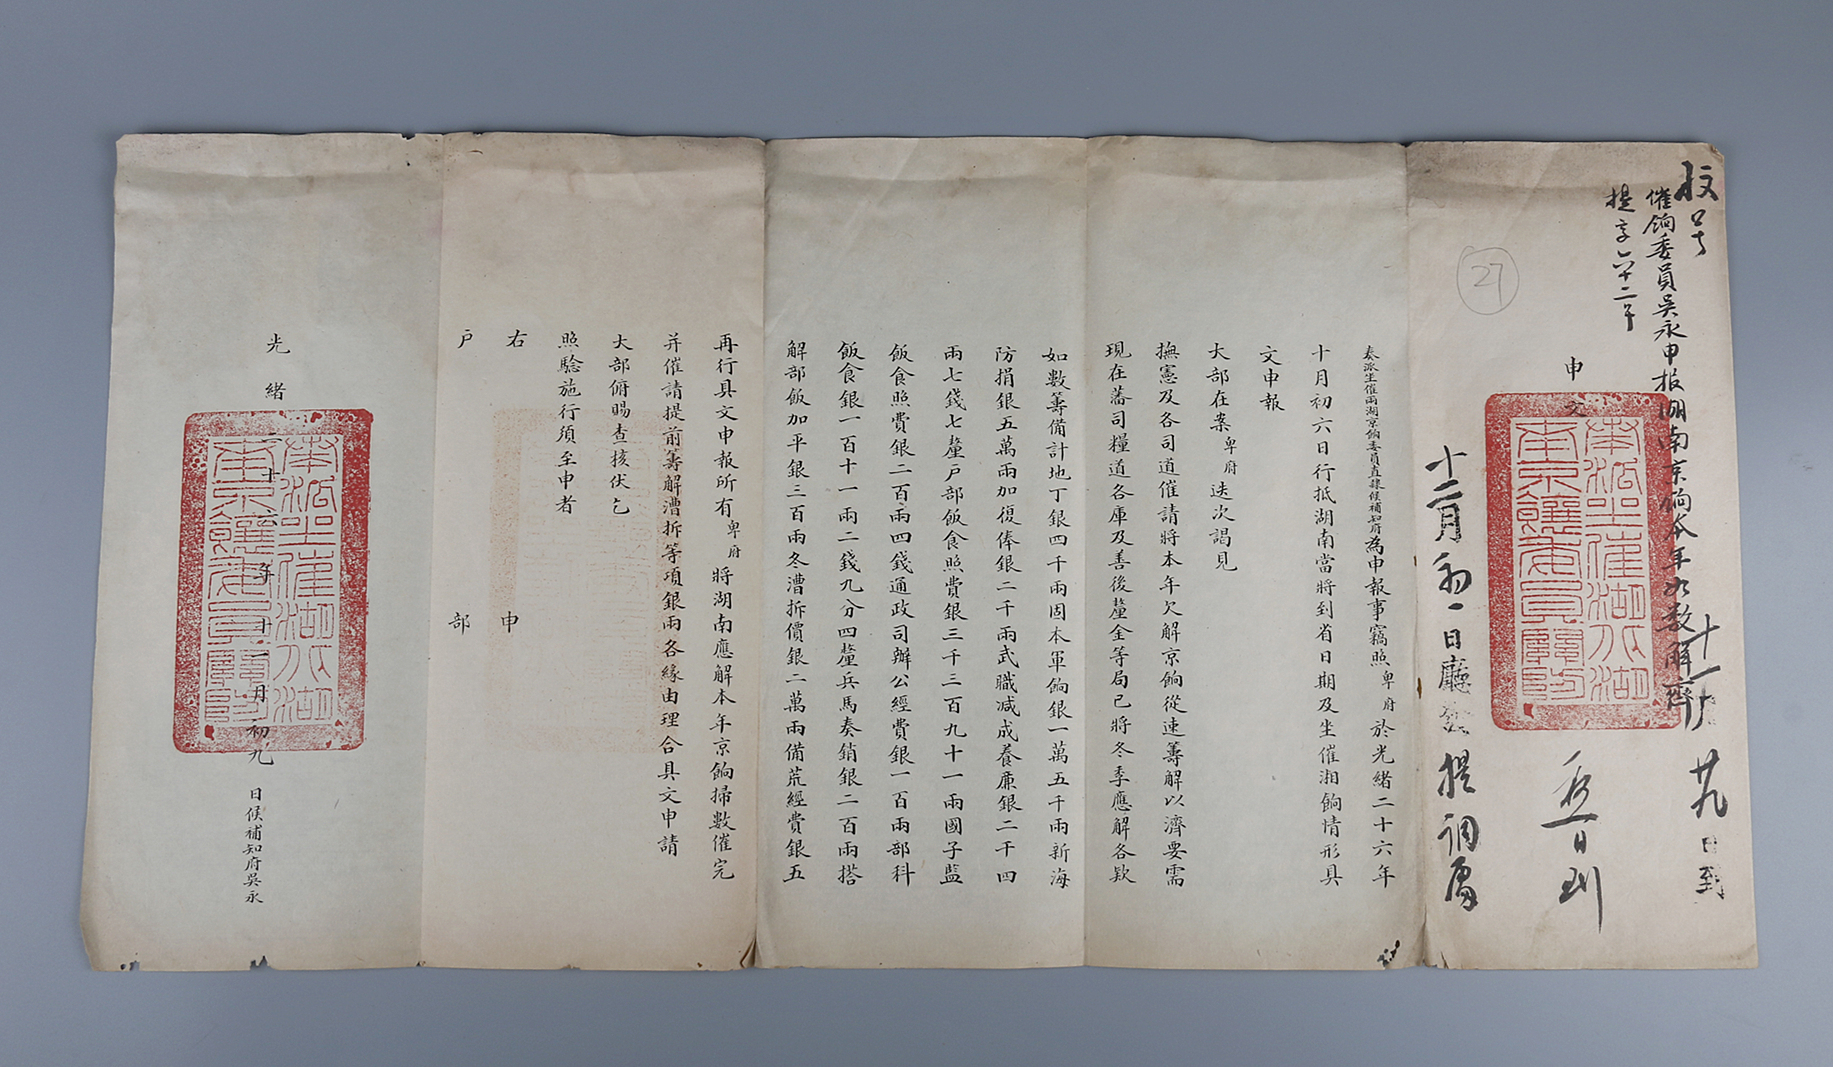 催餉委員吳永申报湖南京餉本年如数解齊
提字六十二年
27
申
文
十一月
廿九
日到
十二月初一日廳發提調處
奏派坐催兩湖京餉委員直隸候補知府為申報事竊照卑府於光緒二十六年
十月初六日行抵湖南當將到省日期及坐催湘餉情形具
文申報
大部在案卑府迭次謁見
撫憲及各司道催請將本年欠解京餉從速籌解以濟要需
現在藩司糧道各庫及善後釐金等局已將冬季應解各款
如數籌備計地丁銀四千兩固本軍餉銀一萬五千兩新海
防捐銀五萬兩加復俸銀二千兩武職減成養廉銀二千四
兩七錢七釐戶部飯食照費銀三千三百九十一兩國子監
飯食照費銀二百兩四錢通政司辦公經費銀一百兩部科
飯食銀一百十一兩二錢九分四釐兵馬奏銷銀二百兩搭
解部飯加平銀三百兩冬漕折價銀二萬兩備荒經費銀五
再行具文申報所有卑府將湖南應解本年京餉掃數催完
并催請提前籌解漕折等項銀兩各緣由理合具文申請
大部俯賜查核伏乞
照驗施行須至申者
右申
戶部
光緒二十六年十一月初九日候補知府吳永